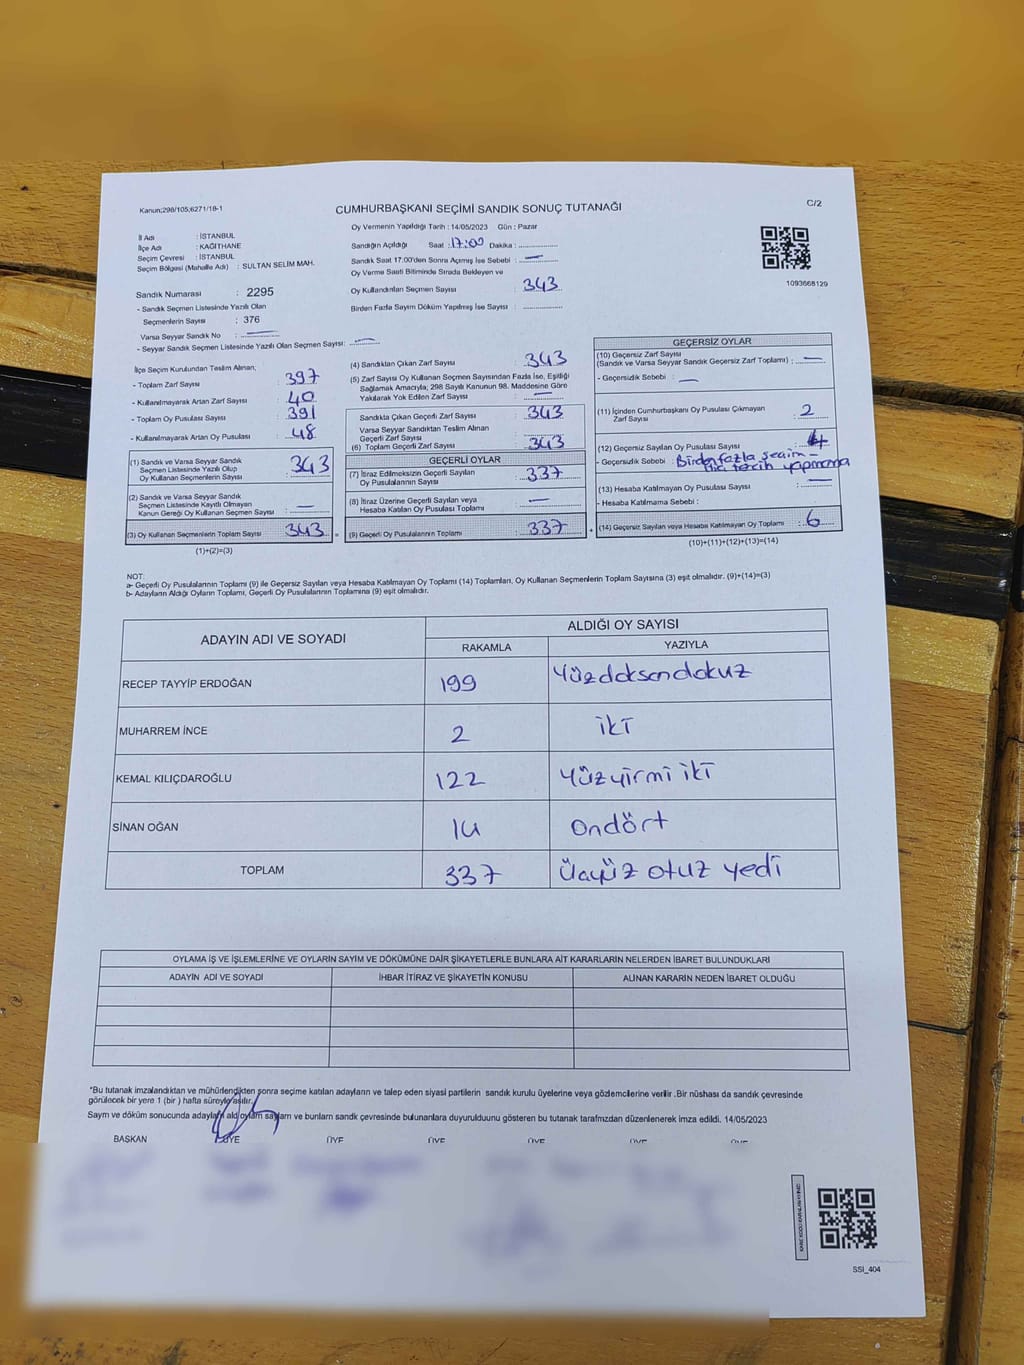 Kanun;298/105;6271/18-1
CUMHURBAŞKANI SEÇİMİ SANDIK SONUÇ TUTANAĞI
C/2
İl Adı : İSTANBUL
İlçe Adı : KAĞITHANE
Seçim Çevresi : İSTANBUL
Seçim Bölgesi (Mahalle Adı) : SULTAN SELİM MAH.
Oy Vermenin Yapıldığı Tarih : 14/05/2023 Gün : Pazar
Sandığın Açıldığı Saat : 17:00 Dakika :
Sandık Saat 17:00'den Sonra Açımış İse Sebebi : —
Oy Verme Saati Bitiminde Sırada Bekleyen ve
Oy Kullandırılan Seçmen Sayısı : 343
Birden Fazla Sayım Döküm Yapılmış İse Sayısı :
1093668129
Sandık Numarası : 2295
- Sandık Seçmen Listesinde Yazılı Olan
Seçmenlerin Sayısı : 376
Varsa Seyyar Sandık No : —
- Seyyar Sandık Seçmen Listesinde Yazılı Olan Seçmen Sayısı: —
İlçe Seçim Kurulundan Teslim Alınan;
- Toplam Zarf Sayısı : 397
- Kullanılmayarak Artan Zarf Sayısı : 40
- Toplam Oy Pusulası Sayısı : 391
- Kullanılmayarak Artan Oy Pusulası : 48
(1) Sandık ve Varsa Seyyar Sandık
Seçmen Listesinde Yazılı Olup
Oy Kullanan Seçmenlerin Sayısı : 343
(2) Sandık ve Varsa Seyyar Sandık
Seçmen Listesinde Kayıtlı Olmayan
Kanun Gereği Oy Kullanan Seçmen Sayısı : —
(3) Oy Kullanan Seçmenlerin Toplam Sayısı : 343
(1)+(2)=(3)
(4) Sandıktan Çıkan Zarf Sayısı : 343
(5) Zarf Sayısı Oy Kullanan Seçmen Sayısından Fazla İse, Eşitliği
Sağlamak Amacıyla, 298 Sayılı Kanunun 98. Maddesine Göre
Yakılarak Yok Edilen Zarf Sayısı : —
Sandıkta Çıkan Geçerli Zarf Sayısı : 343
Varsa Seyyar Sandıktan Teslim Alınan
Geçerli Zarf Sayısı
(6) Toplam Geçerli Zarf Sayısı : 343
GEÇERLİ OYLAR
(7) İtiraz Edilmeksizin Geçerli Sayılan
Oy Pusulalarının Sayısı : 337
(8) İtiraz Üzerine Geçerli Sayılan veya
Hesaba Katılan Oy Pusulası Toplamı : —
(9) Geçerli Oy Pusulalarının Toplamı : 337
GEÇERSİZ OYLAR
(10) Geçersiz Zarf Sayısı
(Sandık ve Varsa Seyyar Sandık Geçersiz Zarf Toplamı) : —
- Geçersizlik Sebebi : —
(11) İçinden Cumhurbaşkanı Oy Pusulası Çıkmayan
Zarf Sayısı : 2
(12) Geçersiz Sayılan Oy Pusulası Sayısı : 4
- Geçersizlik Sebebi : Birden fazla seçim -
Hiç tercih yapmama
(13) Hesaba Katılmayan Oy Pusulası Sayısı : —
- Hesaba Katılmama Sebebi :
(14) Geçersiz Sayılan veya Hesaba Katılmayan Oy Toplamı : 6
(10)+(11)+(12)+(13)=(14)
NOT:
a- Geçerli Oy Pusulalarının Toplamı (9) ile Geçersiz Sayılan veya Hesaba Katılmayan Oy Toplamı (14) Toplamları, Oy Kullanan Seçmenlerin Toplam Sayısına (3) eşit olmalıdır. (9)+(14)=(3)
b- Adayların Aldığı Oyların Toplamı, Geçerli Oy Pusulalarının Toplamına (9) eşit olmalıdır.
ADAYIN ADI VE SOYADI
ALDIĞI OY SAYISI
RAKAMLA YAZIYLA
RECEP TAYYİP ERDOĞAN 199 Yüzdoksandokuz
MUHARREM İNCE 2 iki
KEMAL KILIÇDAROĞLU 122 Yüzyirmi iki
SİNAN OĞAN 14 Ondört
TOPLAM 337 Üçyüz otuz yedi
OYLAMA İŞ VE İŞLEMLERİNE VE OYLARIN SAYIM VE DÖKÜMÜNE DAİR ŞİKAYETLERLE BUNLARA AİT KARARLARIN NELERDEN İBARET BULUNDUKLARI
ADAYIN ADI VE SOYADI İHBAR İTİRAZ VE ŞİKAYETİN KONUSU ALINAN KARARIN NEDEN İBARET OLDUĞU
*Bu tutanak imzalandıktan ve mühürlendikten sonra seçime katılan adayların ve talep eden siyasi partilerin sandık kurulu üyelerine veya gözlemcilerine verilir .Bir nüshası da sandık çevresinde
görülecek bir yere 1 (bir ) hafta süreyle asılır.
Sayım ve döküm sonucunda adayların aldı oyların sayları ve bunların sandk çevresinde bulunanlara duyurulduunu gösteren bu tutanak tarafmzdan düzenlenerek imza edildi. 14/05/2023
BAŞKAN ÜYE ÜYE ÜYE ÜYE ÜYE ÜYE
SSİ_404